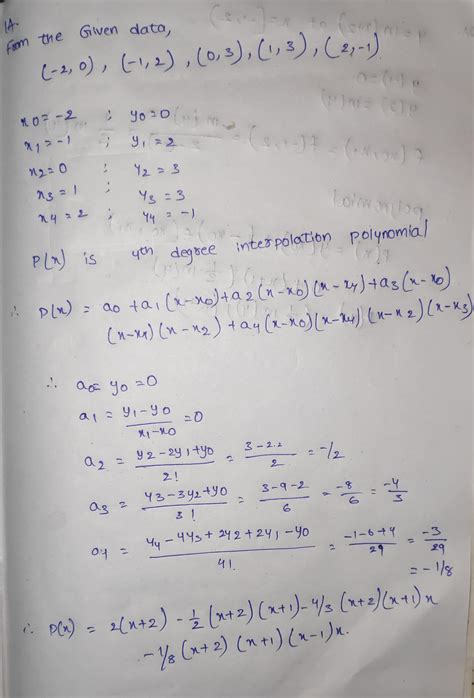 1A.
From the Given data,
(-2,0), (-1,2), (0,3), (1,3), (2,-1)
x0=-2 ; y0=0
x1=-1 ; y1=2
x2=0 ; y2=3
x3=1 ; y3=3
x4=2 ; y4=-1
P(x) is 4th degree interpolation polynomial
∴ P(x) = a0+a1(x-x0)+a2(x-x0)(x-x1)+a3(x-x0)
(x-x1)(x-x2)+a4(x-x0)(x-x1)(x-x2)(x-x3)
∴ a0= y0=0
a1 = y1-y0/x1-x0 =0
a2 = y2-2y1+y0/2! = 3-2.2/2 = -1/2
a3 = y3-3y2+y0/3! = 3-9-2/6 = -8/6 = -4/3
a4 = y4-4y3+2y2+2y1-y0/4! = -1-6+4/29 = -3/29
= -1/8
∴ P(x) = 2(x+2) - 1/2 (x+2)(x+1) - 4/3 (x+2)(x+1)x
- 1/8 (x+2)(x+1)(x-1)x.